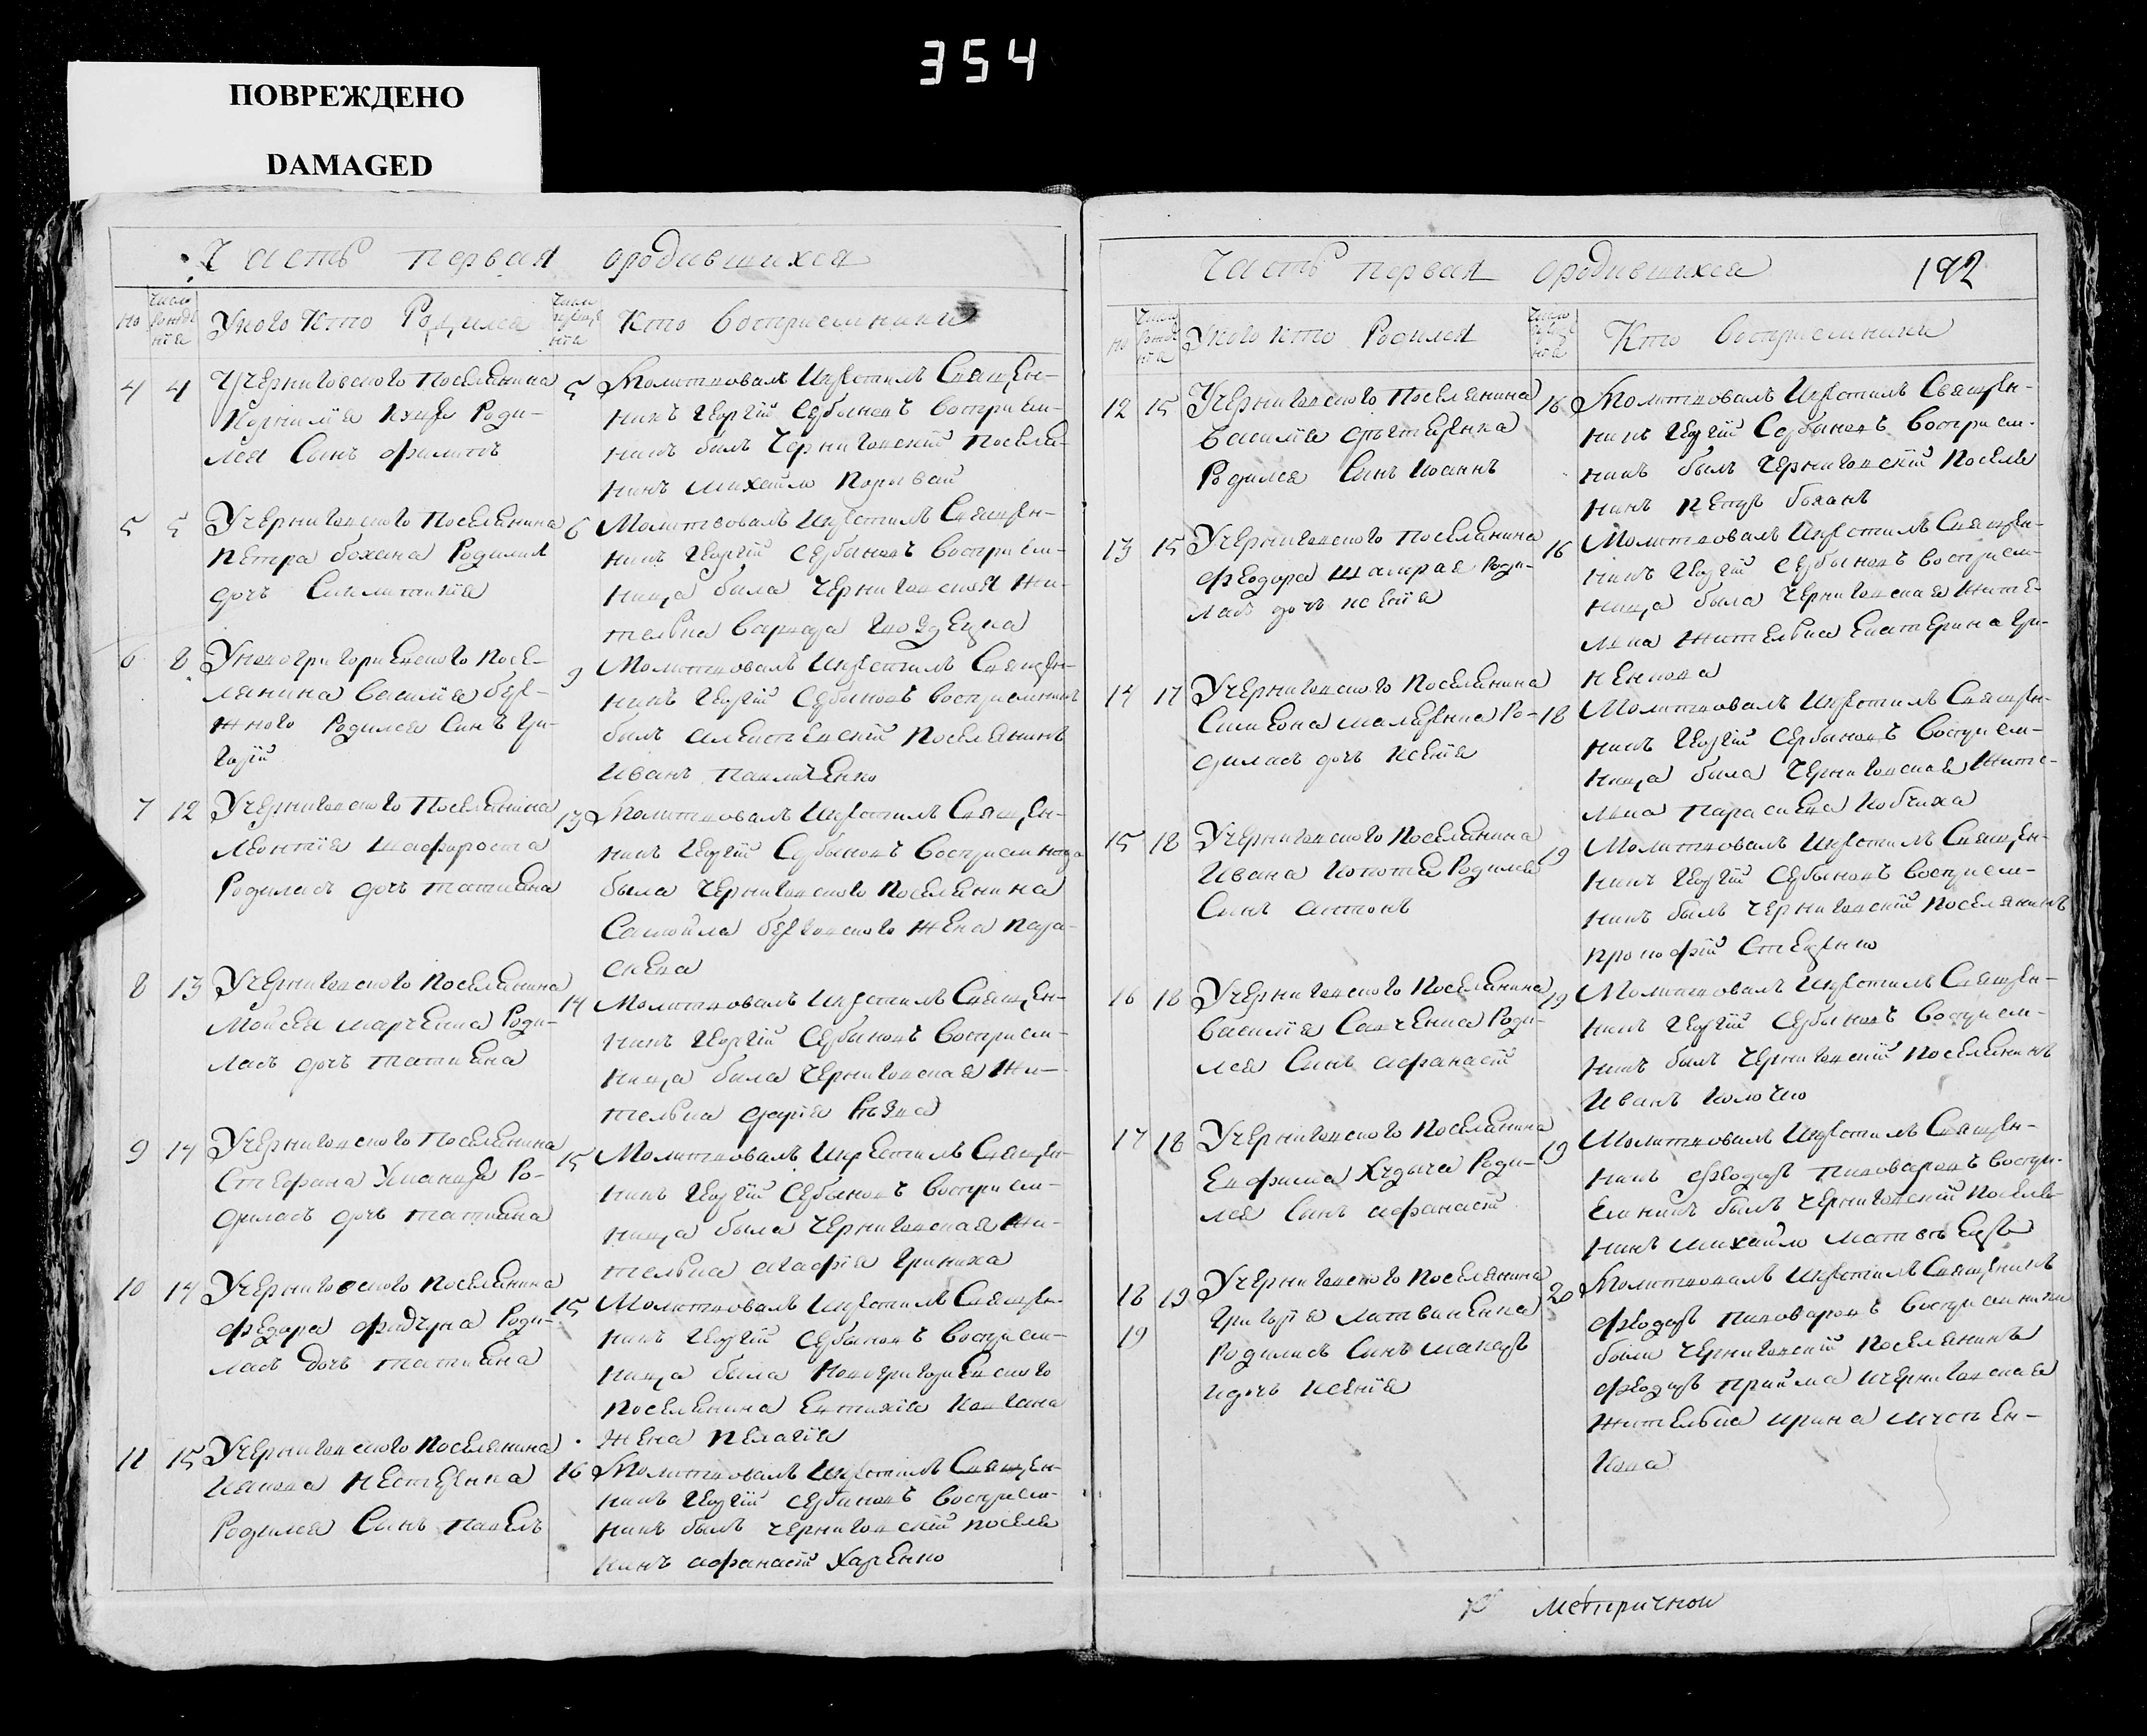 354
ПОВРЕЖДЕНО
DAMAGED
Часть первая ородившихся
но
число рождѣнїя
У кого кто Родился
число крещенїя
Кто восприемники
4 4 У Черниговского Поселянина
Корнилїя Родился
лся Сынъ Филипъ
5 Молитвовалъ икрестилъ Священ-
никъ Георгїй Сербиновъ восприем-
никъ былъ Черниговскїй Поселя-
нинъ михайло
5 5 У Черниговского Поселянина
Петра бохана Родилась
дочь Сикилитикїя
6 Молитвовалъ икрестилъ Священ-
никъ Георгїй Сербиновъ восприем-
ница была Черниговская жи-
телька варвара
6 8 У новогригориевского Посе-
лянина Василїя бер-
жного Родился Синъ Гри-
горїй
9 Молитвовалъ икрестилъ Священ-
никъ Георгїй Сербиновъ восприемникъ
былъ алексѣевскїй Поселянинъ
Иванъ Павличенко
7 12 У Черниговского Поселянина
Леонтїя шафороста
Родилась дочь татияна
13 Молитвовалъ икрестилъ Священ-
никъ Георгїй Сербиновъ восприемница
была Черниговского Поселянина
Самойла жена пара-
скева
8 13 У Черниговского Поселянина
Мойсея марченка Роди-
лась дочь татияна
14 Молитвовалъ икрестилъ Священ-
никъ Георгїй Сербиновъ восприем-
ница была Черниговская жи-
телька дарїя
9 14 У Черниговского Поселянина
Стефана Уманця Ро-
дилась дочь татияна
15 Молитвовалъ икрестилъ Священ-
никъ Георгїй Сербиновъ восприем-
ница была Черниговская жи-
телька агафїя Гриниха
10 14 У Черниговского Поселянина
Федора фидчуна Роди-
лась дочь татияна
15 Молитвовалъ икрестилъ Священ-
никъ Георгїй Сербиновъ восприем-
ница была Новогригориевского
Поселянина Евтихїя Ковгана
жена Пелагїя
11 15 У Черниговского Поселянина
Иякова нестеренка
Родился Синъ Павелъ
16 Молитвовалъ икрестилъ Священ-
никъ Георгїй Сербиновъ восприем-
никъ былъ Черниговскїй Поселя
нинъ афанасїй Харенко
Часть первая ородившихся 192
но
число рождѣнїя
У кого кто Родился
число крещенїя
Кто восприемники
12 15 У Черниговского Поселянина
Василїя
Родился Синъ Иоаннъ
16 Молитвовалъ икрестилъ Священ-
никъ Георгїй Сербиновъ восприем-
никъ былъ Черниговскїй Поселя
нинъ Петръ боханъ
13 15 У Черниговского Поселянина
Феодора шамрая Роди-
лась дочь ксенїя
16 Молитвовалъ икрестилъ Священ-
никъ Георгїй Сербиновъ восприем-
ница была Черниговская жите-
лка жителька Екатерина Гри-
ненкова
14 17 У Черниговского Поселянина
Симеона малеренка Ро-
дилась дочь ксенїя
18 Молитвовалъ икрестилъ Священ-
никъ Георгїй Сербиновъ восприем-
ница была Черниговская жите-
лка Параскева Кобчиха
15 18 У Черниговского Поселянина
Ивана Копотя Родился
Синъ антонъ
19 Молитвовалъ икрестилъ Священ-
никъ Георгїй Сербиновъ восприем-
никъ былъ Черниговскїй Поселянинъ
Прокофїй Стеценко
16 18 У Черниговского Поселянина
Василїя Савченка Роди-
лся Синъ афанасїй
19 Молитвовалъ икрестилъ Священ-
никъ Георгїй Сербиновъ восприем-
никъ былъ Черниговскїй Поселянинъ
Иванъ
17 18 У Черниговского Поселянина
Евфима Роди-
лся Синъ афанасїй
19 Молитвовалъ икрестилъ Священ-
никъ Феодоръ Пивоваровъ воспри-
емникъ былъ Черниговскїй Поселя-
нинъ михайло
18 19 У Черниговского Поселянина
19 Григорїя Латвиненка
Родились Синъ макаръ
идочь ксенїя
20 Молитвовалъ икрестилъ Священникъ
Феодоръ Пивоваровъ восприемники
были Черниговскїй Поселянинъ
Феодоръ Прийма и черниговская
жителька ирина
кова
Метричной